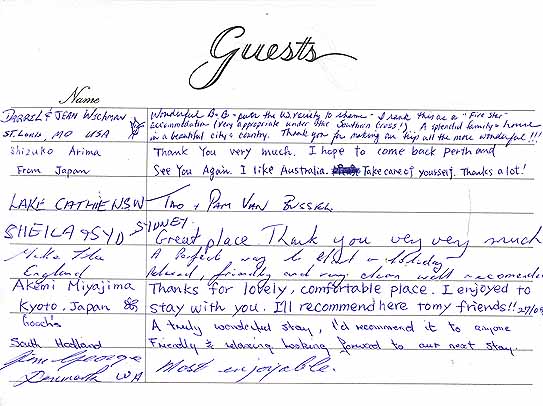 Guests
Name
DARREL & JEAN WICHMAN Wonderful B & B - puts the to shame - I rank this as a "Five Star"
accommodation (very appropriate under star Southern Cross!) A splendid family - home
ST. LOUIS, MO USA in a beautiful city & country. Thank you for making our trip all the more wonderful!!!
Shizuko Arima Thank You very much. I hope to come back Perth and
From Japan See You Again. I like Australia. Take care of yourself. Thanks a lot!
LAKE CATHIE NSW + PAM VAN
SHEILA & SYD SYDNEY. Great place Thank you very very much
Mike A Perfect way to a holiday
England Relaxed, friendly and very clean well
Akemi Miyajima Thanks for lovely, comfortable place. I enjoyed to
Kyoto, Japan stay with you. I'll recommend here to my friends!!
A truly wonderful stay, I'd recommend it to anyone
South Hedland Friendly & relaxing looking forward to our next stay.
Jim George
Denmark WA Most enjoyable.